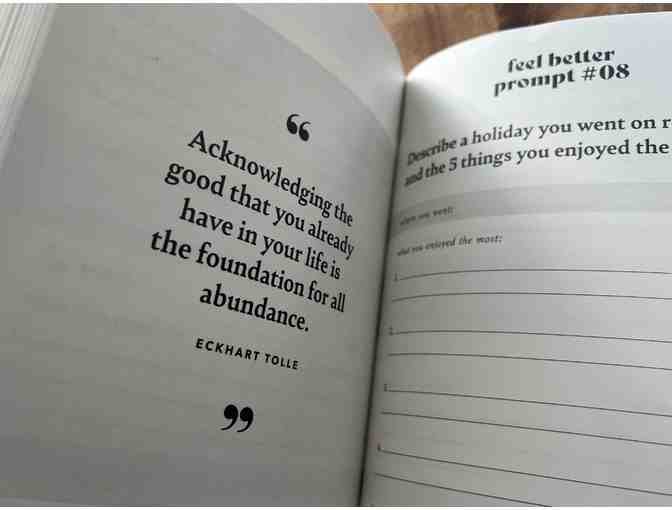 “
Acknowledging the
good that you already
have in your life is
the foundation for all
abundance.
ECKHART TOLLE
”
feel better
prompt #08
Describe a holiday you went on
and the 5 things you enjoyed the
where you went:
what you enjoyed the most:
1.
2.
3.
4.